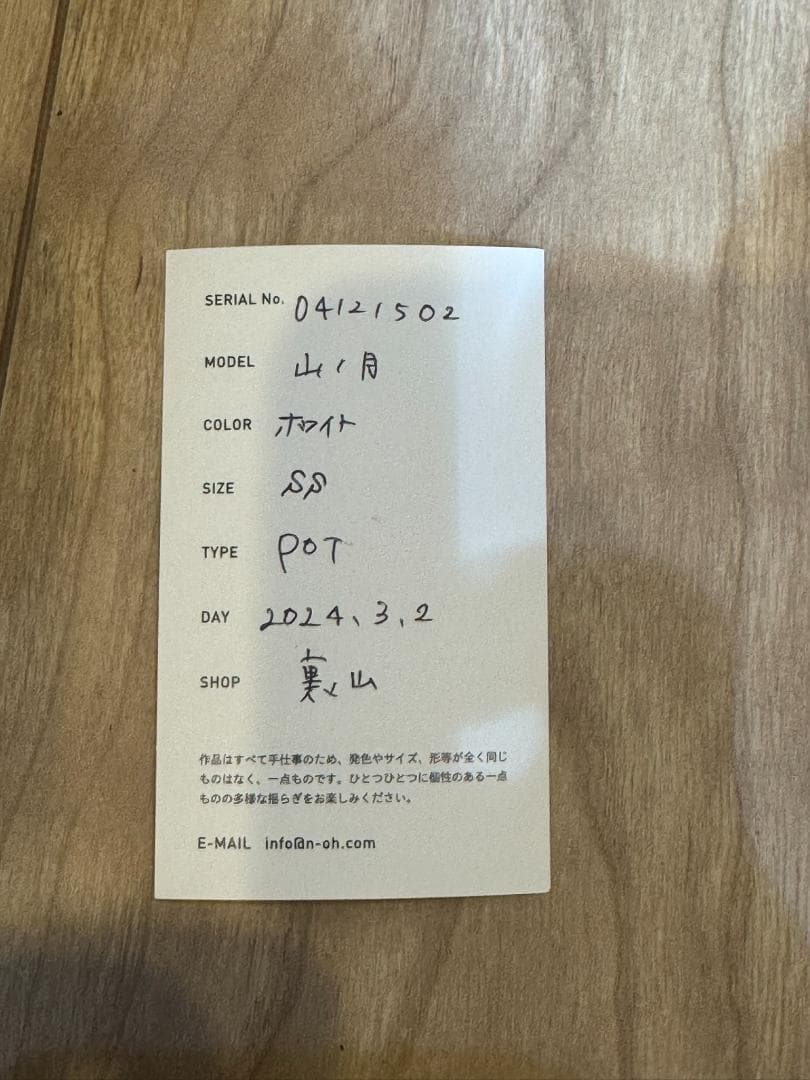 SERIAL No. 04121502
MODEL 山ノ月
COLOR ホワイト
SIZE SS
TYPE POT
DAY 2024、3、2
SHOP 裏山
作品はすべて手仕事のため、発色やサイズ、形等が全く同じ
ものはなく、一点ものです。ひとつひとつに個性のある一点
ものの多様な揺らぎをお楽しみください。
E-MAIL info@n-oh.com